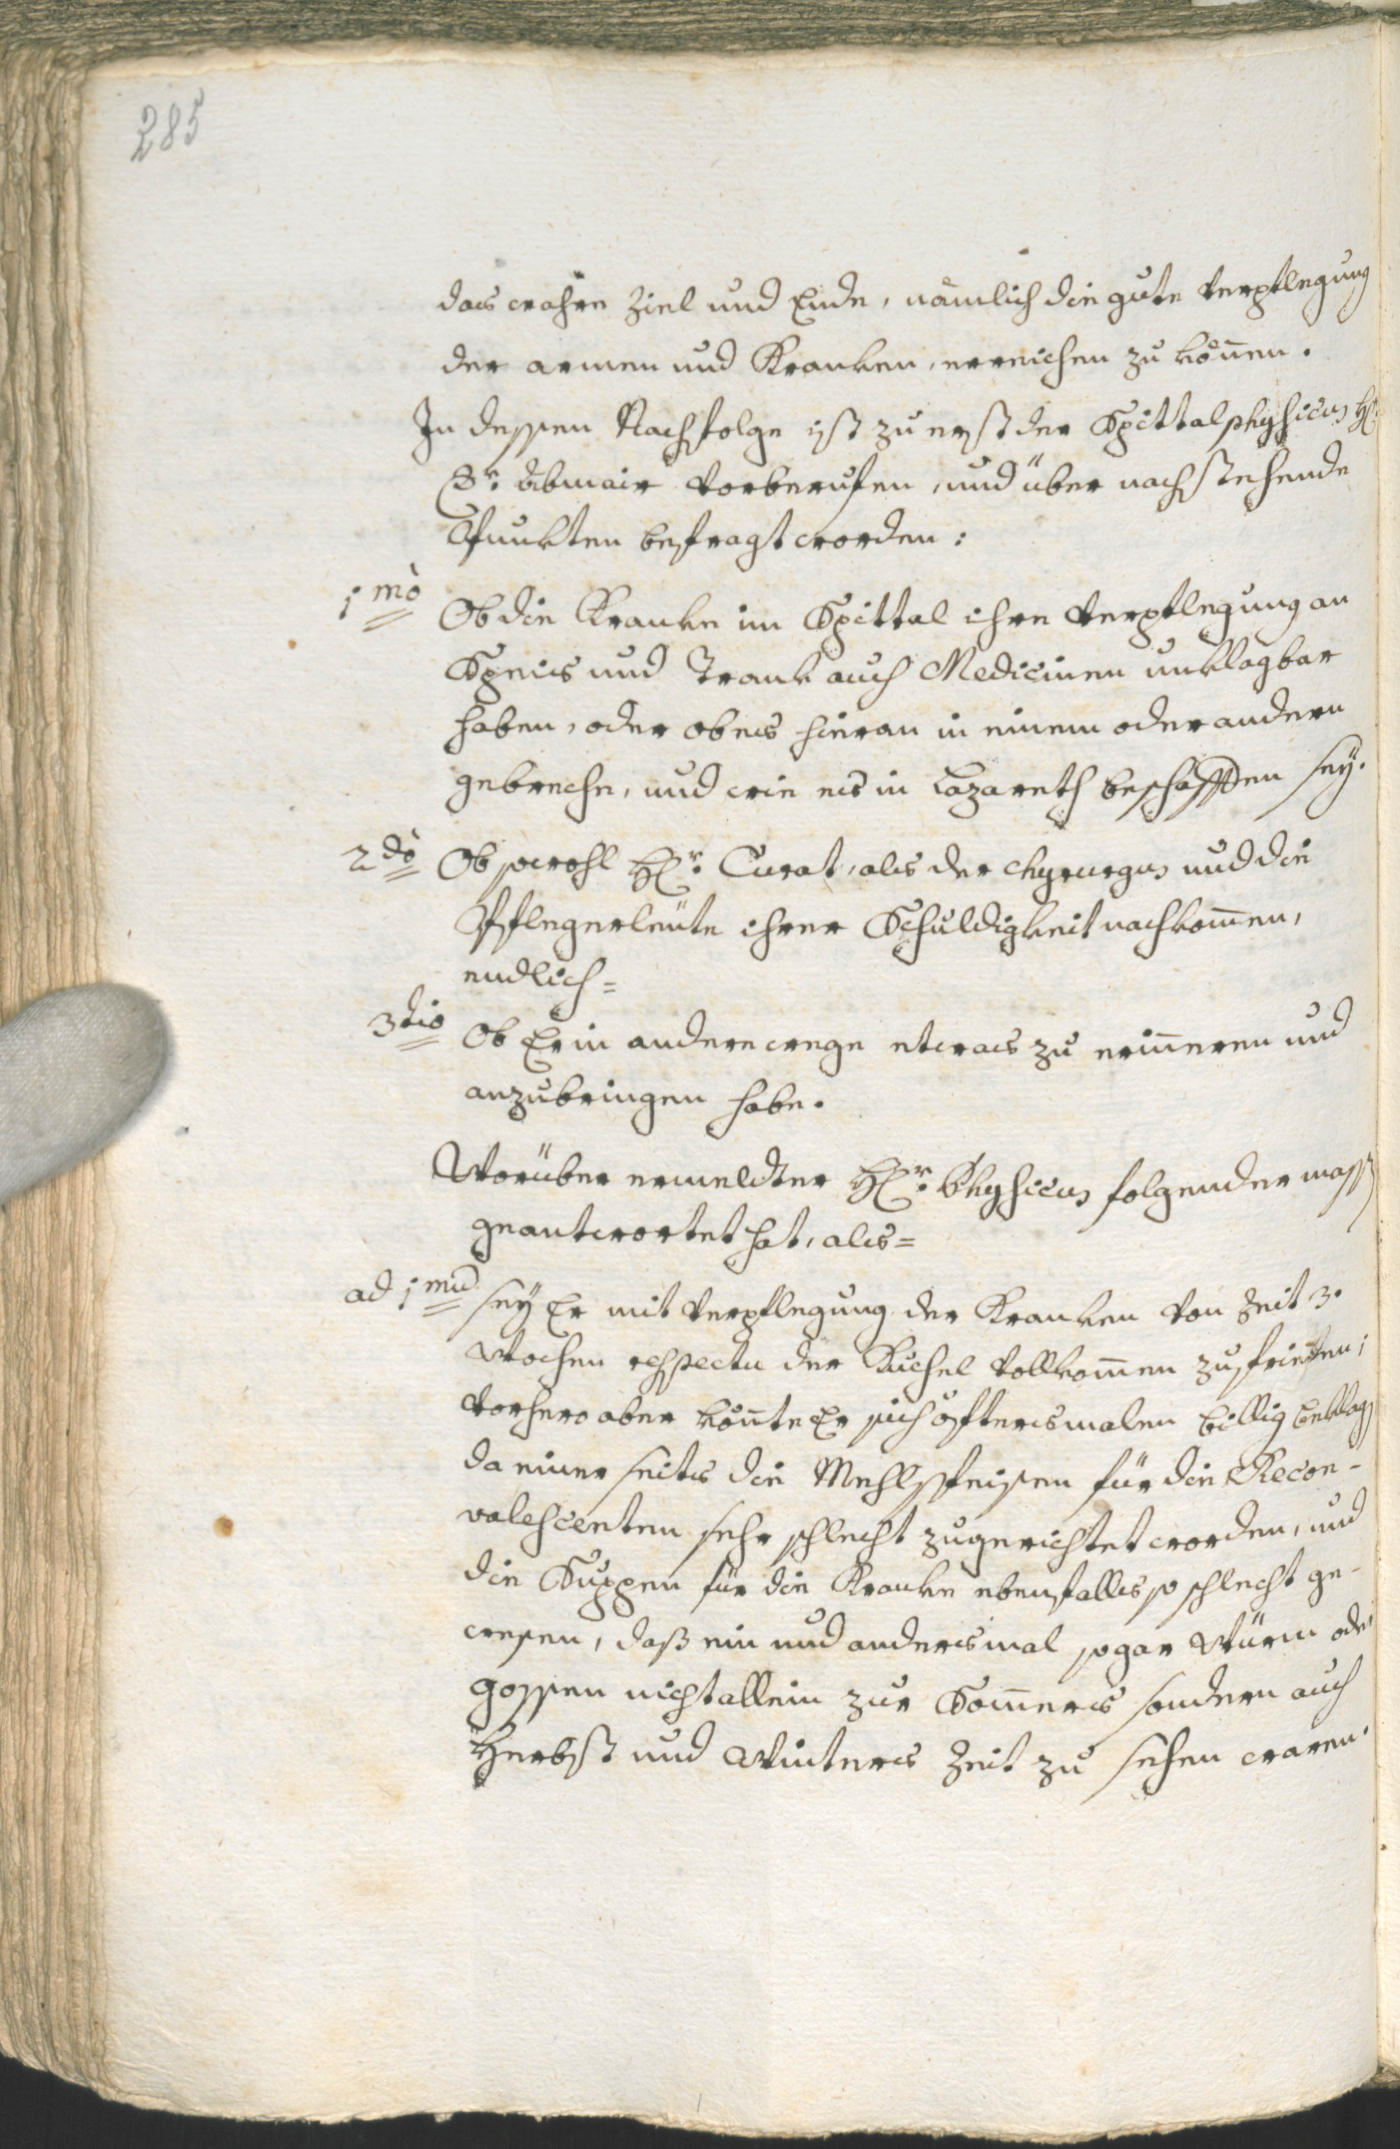 285
das wahre Ziel und Ende, nämlich die gute Verpflegung
der armen und Kranken, erreichen zu können.
In dessen Nachfolge ist zu erst der Spittalphysicus H:
Dr. vorberufen, und über nachstehende
Punkten befragt worden:
1mò Ob die Kranke im Spittal ihre Verpflegung an
Speis und Trank auch Medicinen unklagbar
haben, oder ob es hieran in einem oder andern
gebreche, und wie es in Lazareth beschaffen sey.
2dò Ob sowohl Hr. Curat, als der chyrurgus und die
Pflegerleüte ihrer Schuldigkeit nachkom̄en,
endlich=
3tio Ob Er in andere wege etwas zu erin̄eren und
anzubringen habe.
Worüber ermeldter Hr. Physicus folgender mass
geantwortet hat, als=
ad 1mū sey Er mit Verpflegung der Kranken von Zeit 3.
Wochen respectu der Kuchel vollkom̄en zufrieden;
vorhero aber kön̄te Er sich öftersmalen billig beklag
da einer seits die Mehlspeisen für die Recon-
valescenten sehr schlecht zugerichtet worden, und
die Suppen für die Kranke ebenfalls so schlecht ge-
wesen, daß ein und andersmal sogar Würm ode
gossen nicht allein zur Som̄ers sondern auch
Herbst und Winters Zeit zu sehen waren.